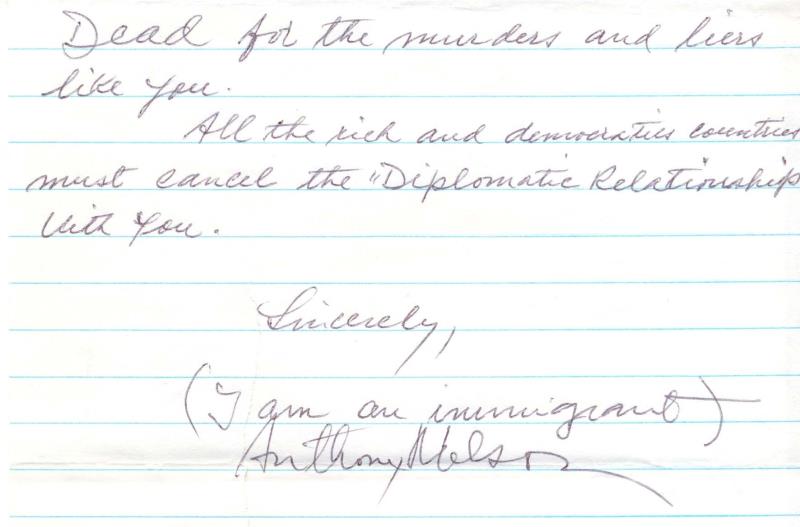 Dead for the murders and liers
like you.
All the rich and democraties countries
must cancel the "Diplomatic Relationship
With You.
Sincerely,
(I am an immigrant)
Anthony Nelson